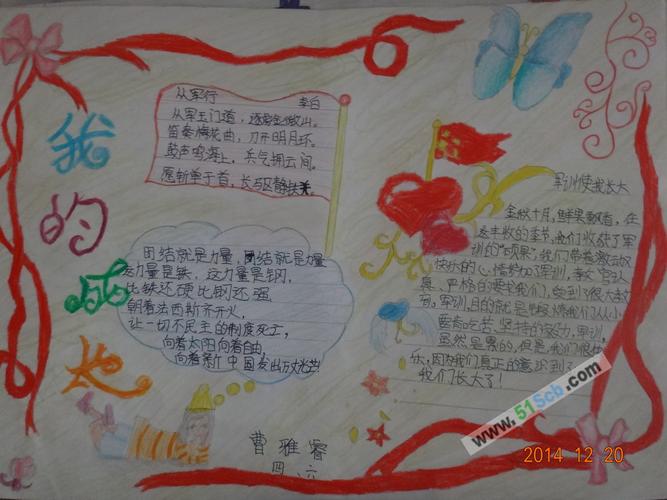 我的成长
从军行
李白
从军玉门道，逐虏金微山。
笛奏梅花曲，刀开明月环。
鼓声鸣海上，兵气拥云间。
愿斩单于首，长驱静铁关。
团结就是力量，团结就是力量
这力量是铁，这力量是钢，
比铁还硬比钢还强
朝着法西斯齐开火，
让一切不民主的制度死亡，
向着太阳向着自由，
向着新中国发出万丈光芒
军训使我长大
金秋十月，鲜果飘香，在
这丰收的季节，我们收获了军
训的“硕果”，我们带着激动又
快乐的心情参加了军训，教官认
真、严格的要求我们，受到了很大教
育，军训目的就是锻炼我们从小
能有吃苦、坚持的毅力，军训
虽然是累的，但是，我们很快
乐，因为我们真正的意识到了
我们长大了！
曹雅睿
四、六
www.51Scb.com
2014 12 20